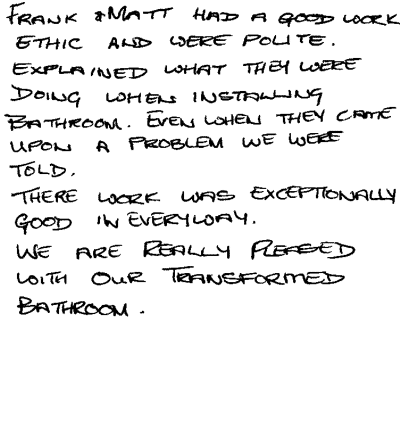 FRANK & MATT HAD A GOOD WORK
ETHIC AND WERE POLITE.
EXPLAINED WHAT THEY WERE
DOING WHEN INSTALLING
BATHROOM. EVEN WHEN THEY CAME
UPON A PROBLEM WE WERE
TOLD.
THERE WORK WAS EXCEPTIONALLY
GOOD IN EVERYWAY.
WE ARE REALLY PLEASED
WITH OUR TRANSFORMED
BATHROOM.